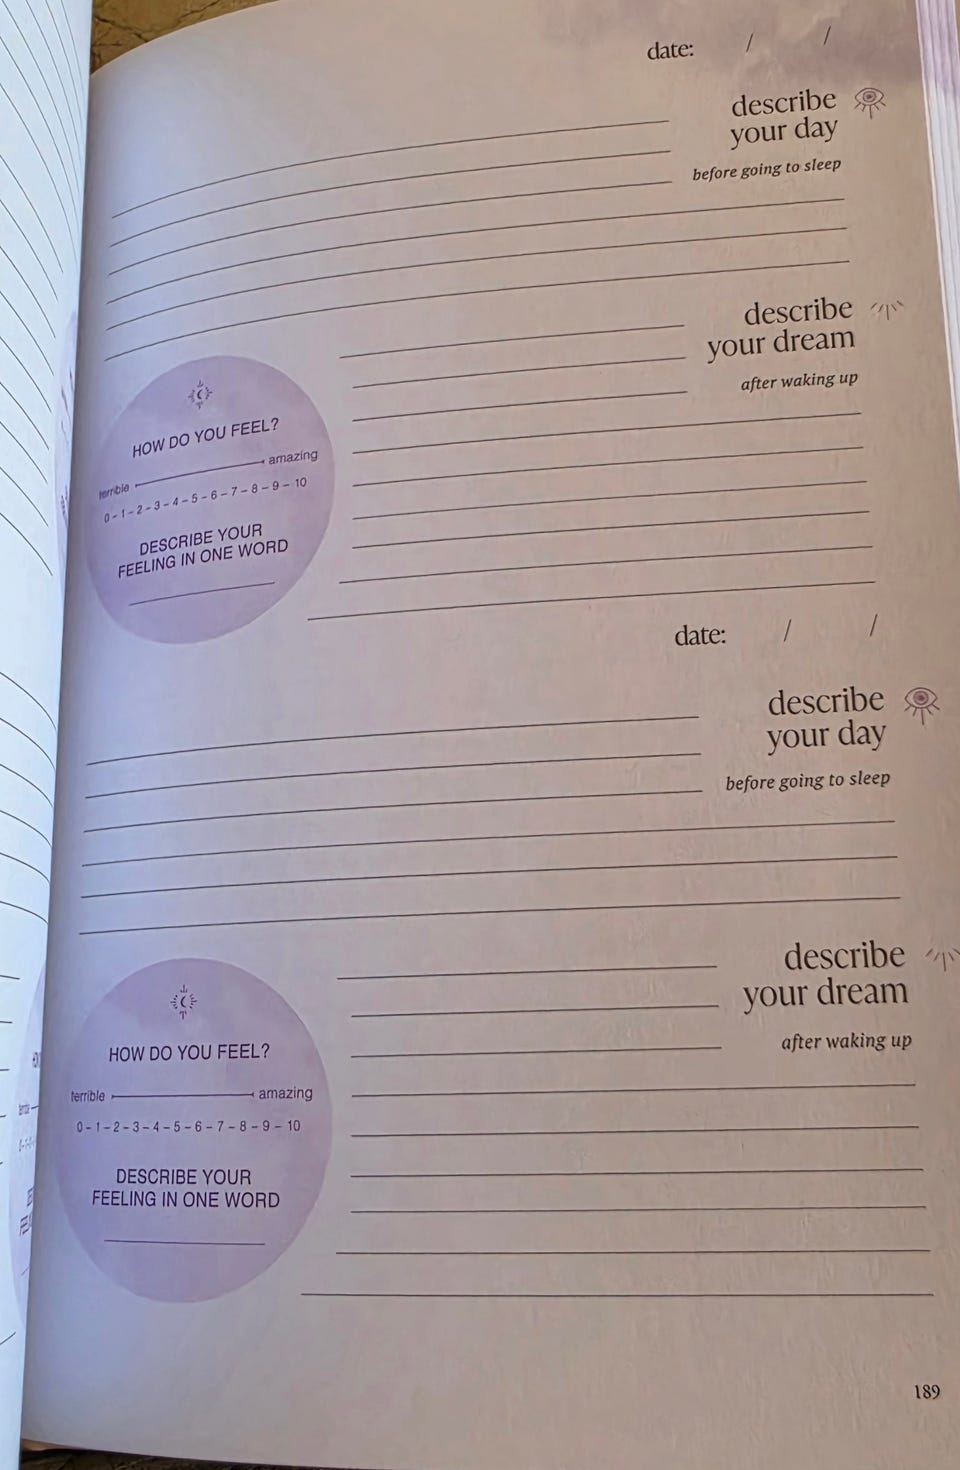 date: / /
describe
your day
before going to sleep
describe
your dream
after waking up
HOW DO YOU FEEL?
terrible amazing
0 - 1 - 2 - 3 - 4 - 5 - 6 - 7 - 8 - 9 - 10
DESCRIBE YOUR
FEELING IN ONE WORD
date: / /
describe
your day
before going to sleep
describe
your dream
after waking up
HOW DO YOU FEEL?
terrible amazing
0 - 1 - 2 - 3 - 4 - 5 - 6 - 7 - 8 - 9 - 10
DESCRIBE YOUR
FEELING IN ONE WORD
189